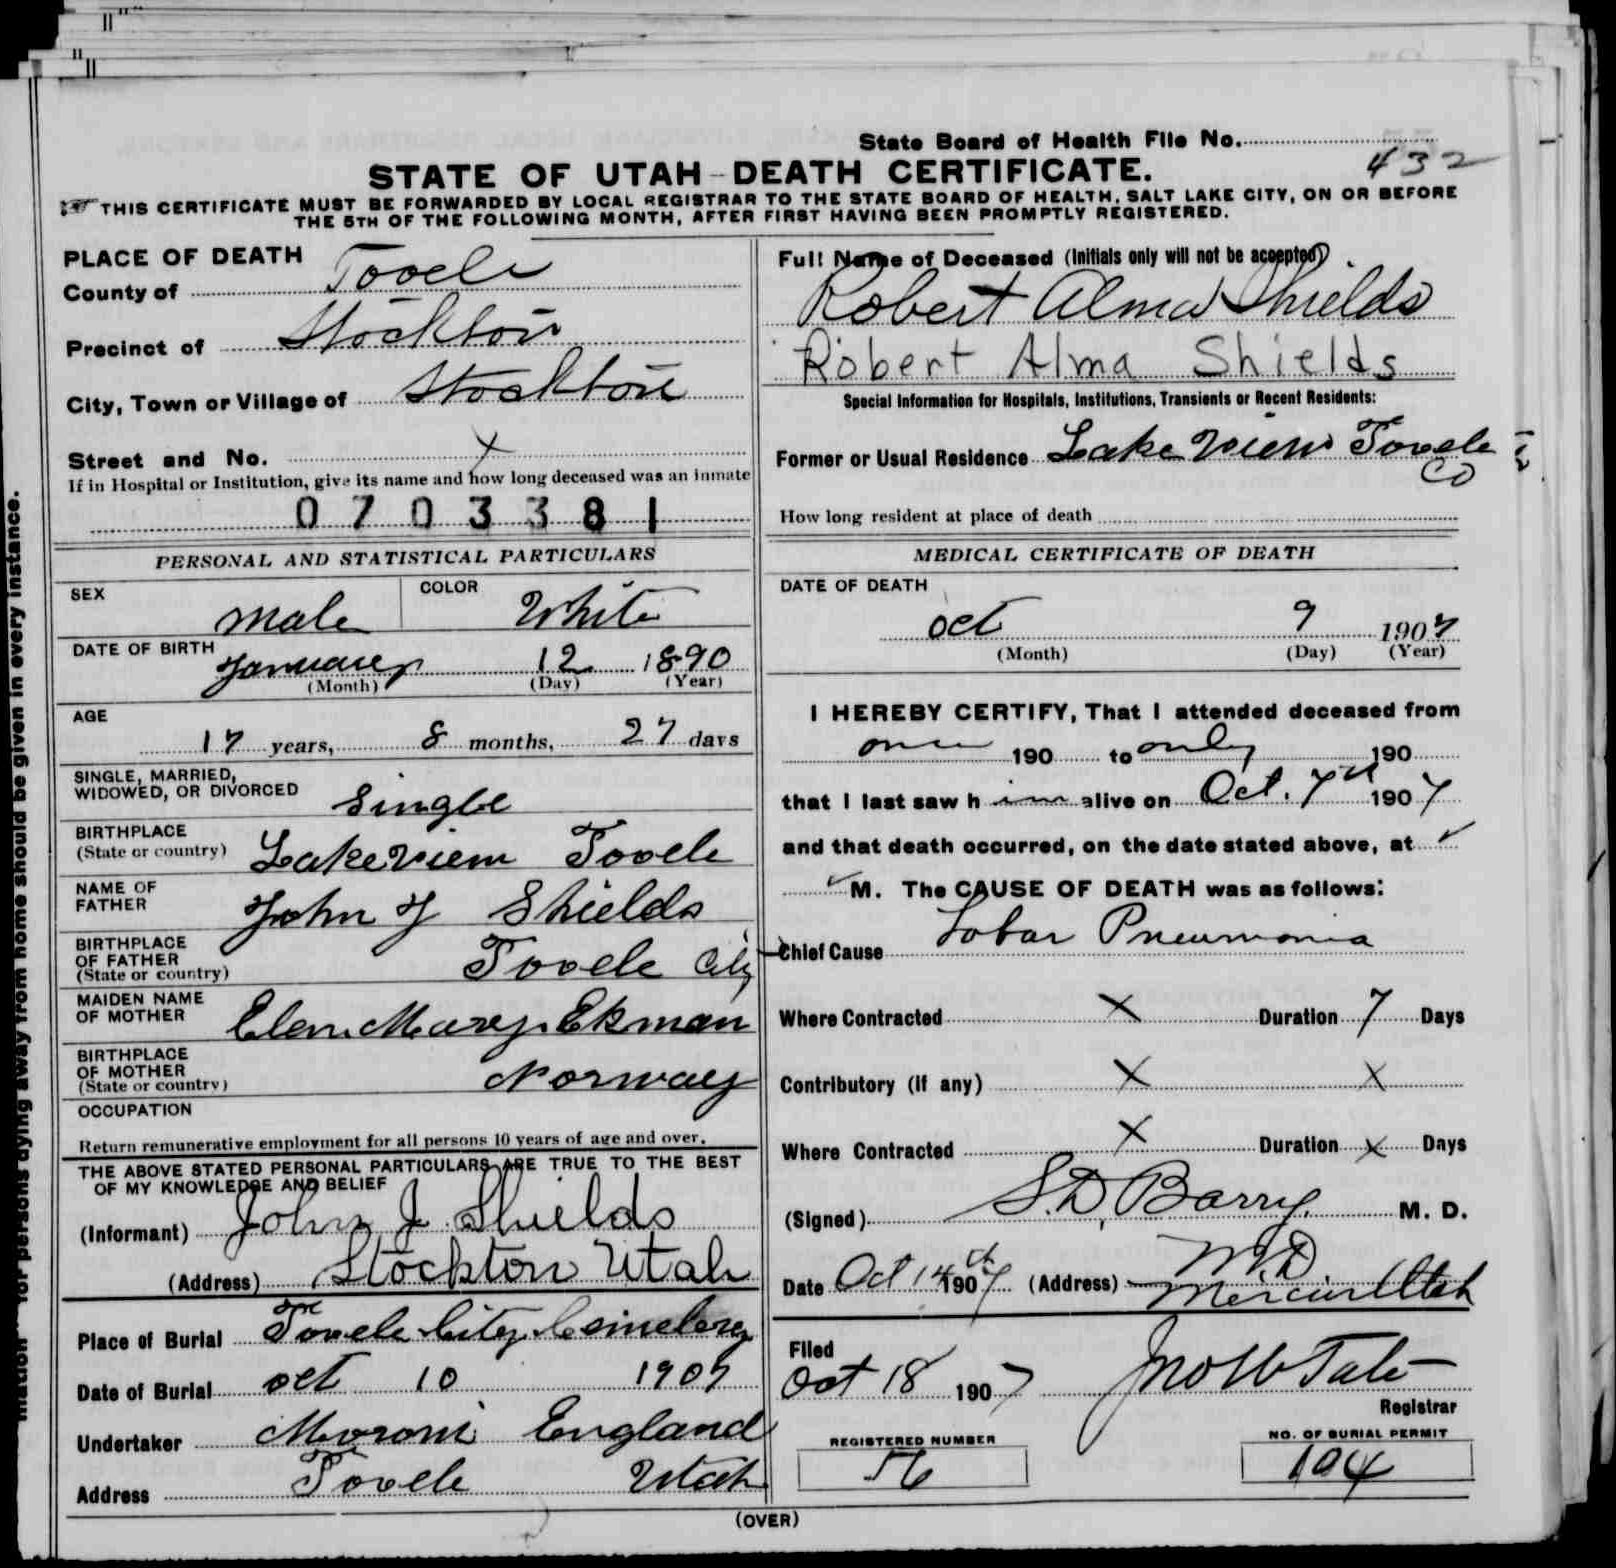 State Board of Health File No.
432
STATE OF UTAH-DEATH CERTIFICATE.
THIS CERTIFICATE MUST BE FORWARDED BY LOCAL REGISTRAR TO THE STATE BOARD OF HEALTH, SALT LAKE CITY, ON OR BEFORE
THE 5TH OF THE FOLLOWING MONTH, AFTER FIRST HAVING BEEN PROMPTLY REGISTERED.
PLACE OF DEATH
County of Tooele
Precinct of Stockton
City, Town or Village of Stockton
Street and No. X
If in Hospital or Institution, give its name and how long deceased was an inmate
0703381
PERSONAL AND STATISTICAL PARTICULARS
SEX Male COLOR White
DATE OF BIRTH January 12 1890
(Month) (Day) (Year)
AGE
17 years, 8 months, 27 days
SINGLE, MARRIED,
WIDOWED, OR DIVORCED Single
BIRTHPLACE
(State or country) Lakeview Tooele
NAME OF
FATHER John J Shields
BIRTHPLACE
OF FATHER
(State or country) Tooele City
MAIDEN NAME
OF MOTHER Elen Mary Ekman
BIRTHPLACE
OF MOTHER
(State or country) Norway
OCCUPATION
Return remunerative employment for all persons 10 years of age and over.
THE ABOVE STATED PERSONAL PARTICULARS ARE TRUE TO THE BEST
OF MY KNOWLEDGE AND BELIEF
(Informant) John J Shields
(Address) Stockton Utah
Place of Burial Tooele City Cemetery
Date of Burial Oct 10 1907
Undertaker Moroni England
Address Tooele Utah
Full Name of Deceased (Initials only will not be accepted)
Robert Alma Shields
Robert Alma Shields
Special Information for Hospitals, Institutions, Transients or Recent Residents:
Former or Usual Residence Lake View Tooele
Co
How long resident at place of death
MEDICAL CERTIFICATE OF DEATH
DATE OF DEATH
Oct 9 1907
(Month) (Day) (Year)
I HEREBY CERTIFY, That I attended deceased from
once 190 to only 190
that I last saw h im alive on Oct. 7th 1907
and that death occurred, on the date stated above, at
M. The CAUSE OF DEATH was as follows:
Chief Cause Lobar Pneumonia
Where Contracted X Duration 7 Days
Contributory (if any) X X
Where Contracted X Duration X Days
(Signed) S.D. Barry. M. D.
M.D.
Date Oct 14th 1907 (Address) Mercur Utah
Filed
Oct 18 1907 Jno W Tate
Registrar
REGISTERED NUMBER
56
NO. OF BURIAL PERMIT
104
(OVER)
for persons dying away from home should be given in every instance.